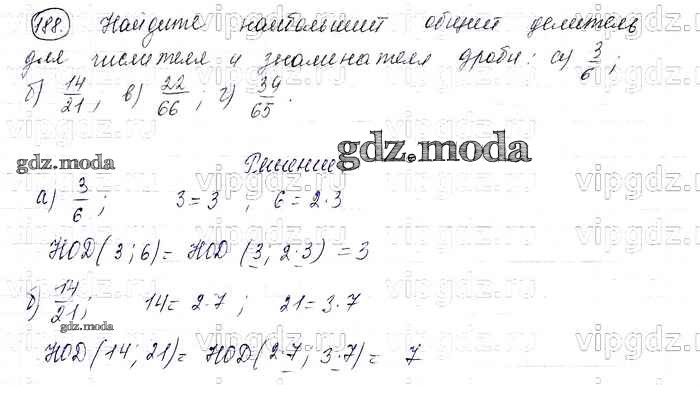 188. Найдите наибольший общий делитель
для числителя и знаменателя дроби: а) 3/6;
б) 14/21; в) 22/66; г) 34/65.
gdz.moda Решение gdz.moda
а) 3/6; 3=3; 6=2·3
НОД(3;6)= НОД(3; 2·3) =3
б) 14/21; 14=2·7; 21=3·7
gdz.moda
НОД(14; 21)= НОД(2·7; 3·7)= 7